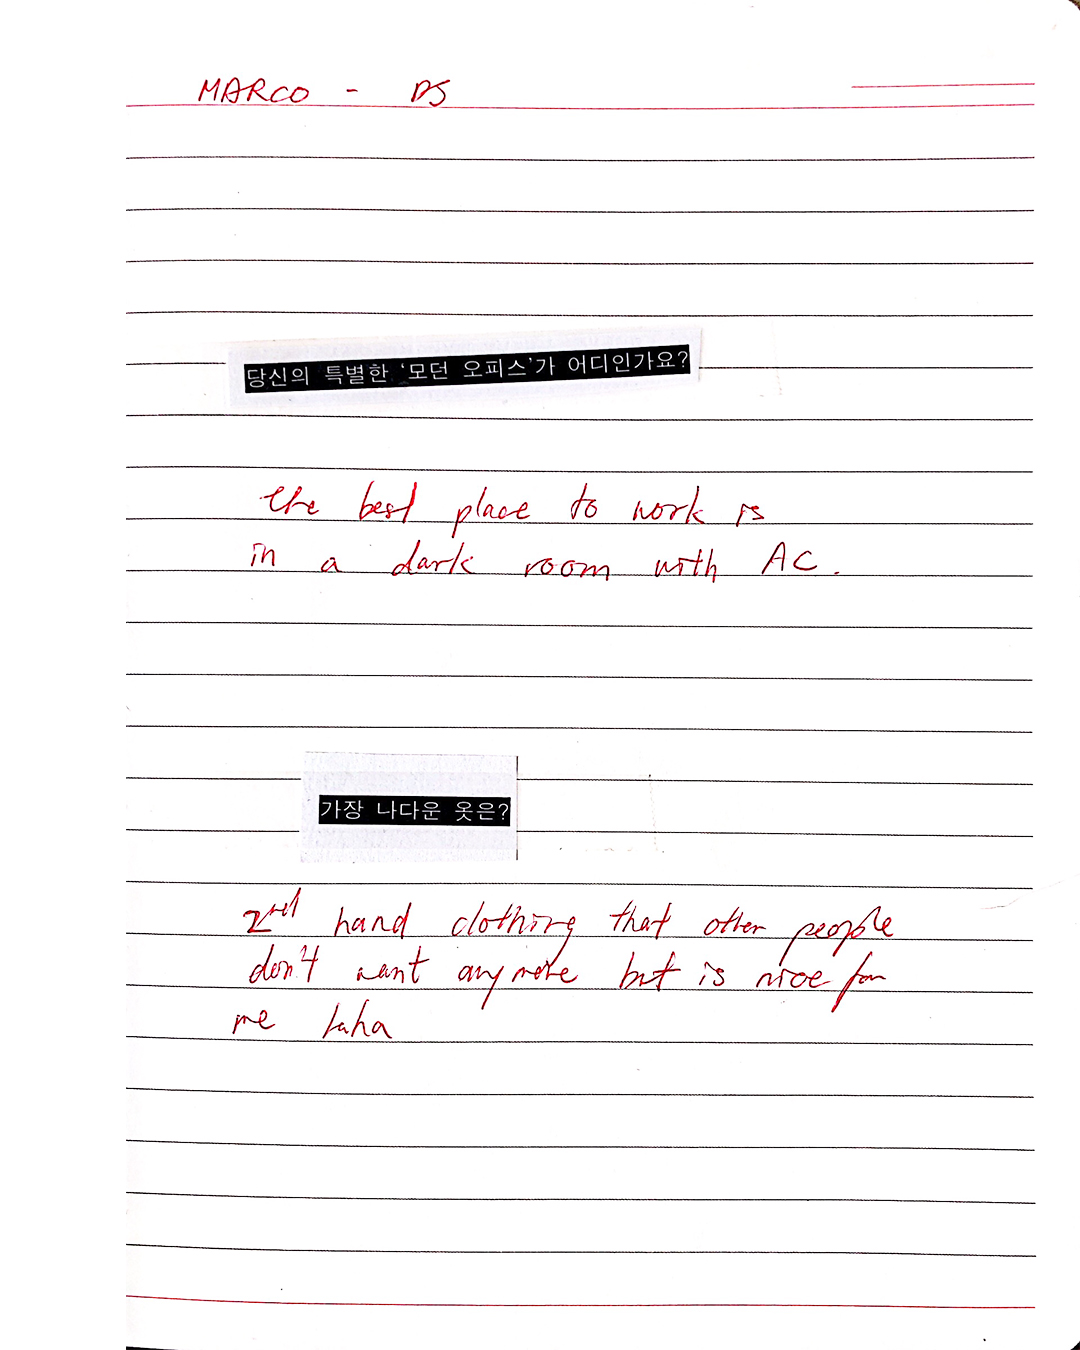 MARCO - DS
당신의 특별한 '모던 오피스'가 어디인가요?
the best place to work is
in a dark room with AC.
가장 나다운 옷은?
2nd hand clothing that other people
don't want anymore but is nice for
me haha